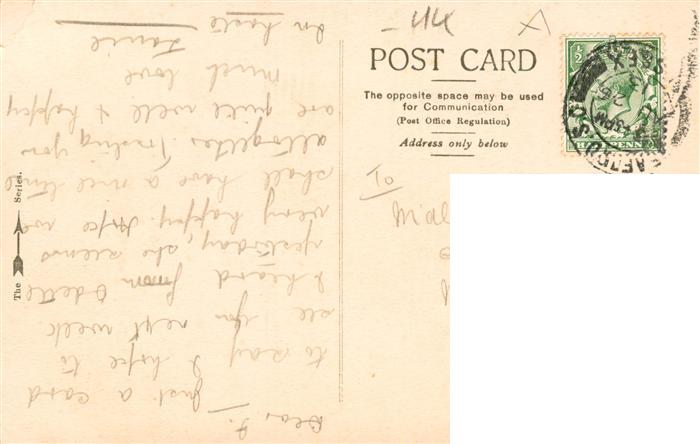 Dear F.
Just a card
to say I hope to
see you next week
I heard from Odette
yesterday, she seems
very happy. Hope we
shall have a nice time
altogether. Trusting you
are quite well & happy
Much love
In haste
The Series.
-44
X
POST CARD
The opposite space may be used
for Communication
(Post Office Regulation)
Address only below
To
½
½
HALF PENNY